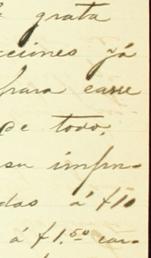 grata
cciones já
para casse
de todo.
su impu-
das á $10
á $1.50 ca-